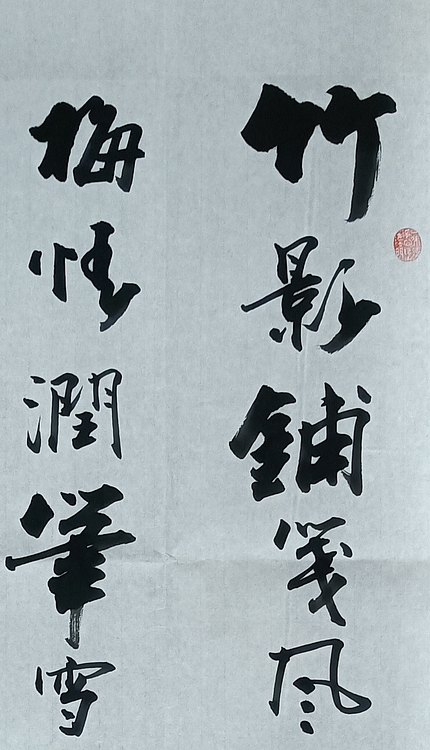 竹影鋪箋风
梅情潤筆雪